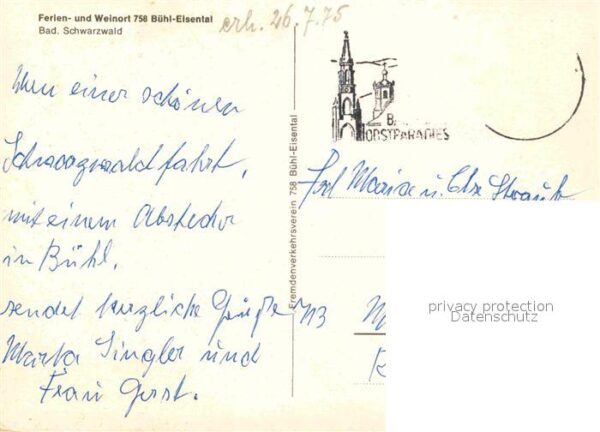 Ferien- und Weinort 758 Bühl-Eisental
Bad. Schwarzwald
erh. 26.7.75
Von einer schönen
Schwarzwaldfahrt,
mit einem Abstecher
in Bühl,
sendet herzliche Grüße
Marta Singler und
Frau Gerst.
Fremdenverkehrsverein 758 Bühl-Eisental
OBSTPARADIES
Maria u.
713
privacy protection
Datenschutz